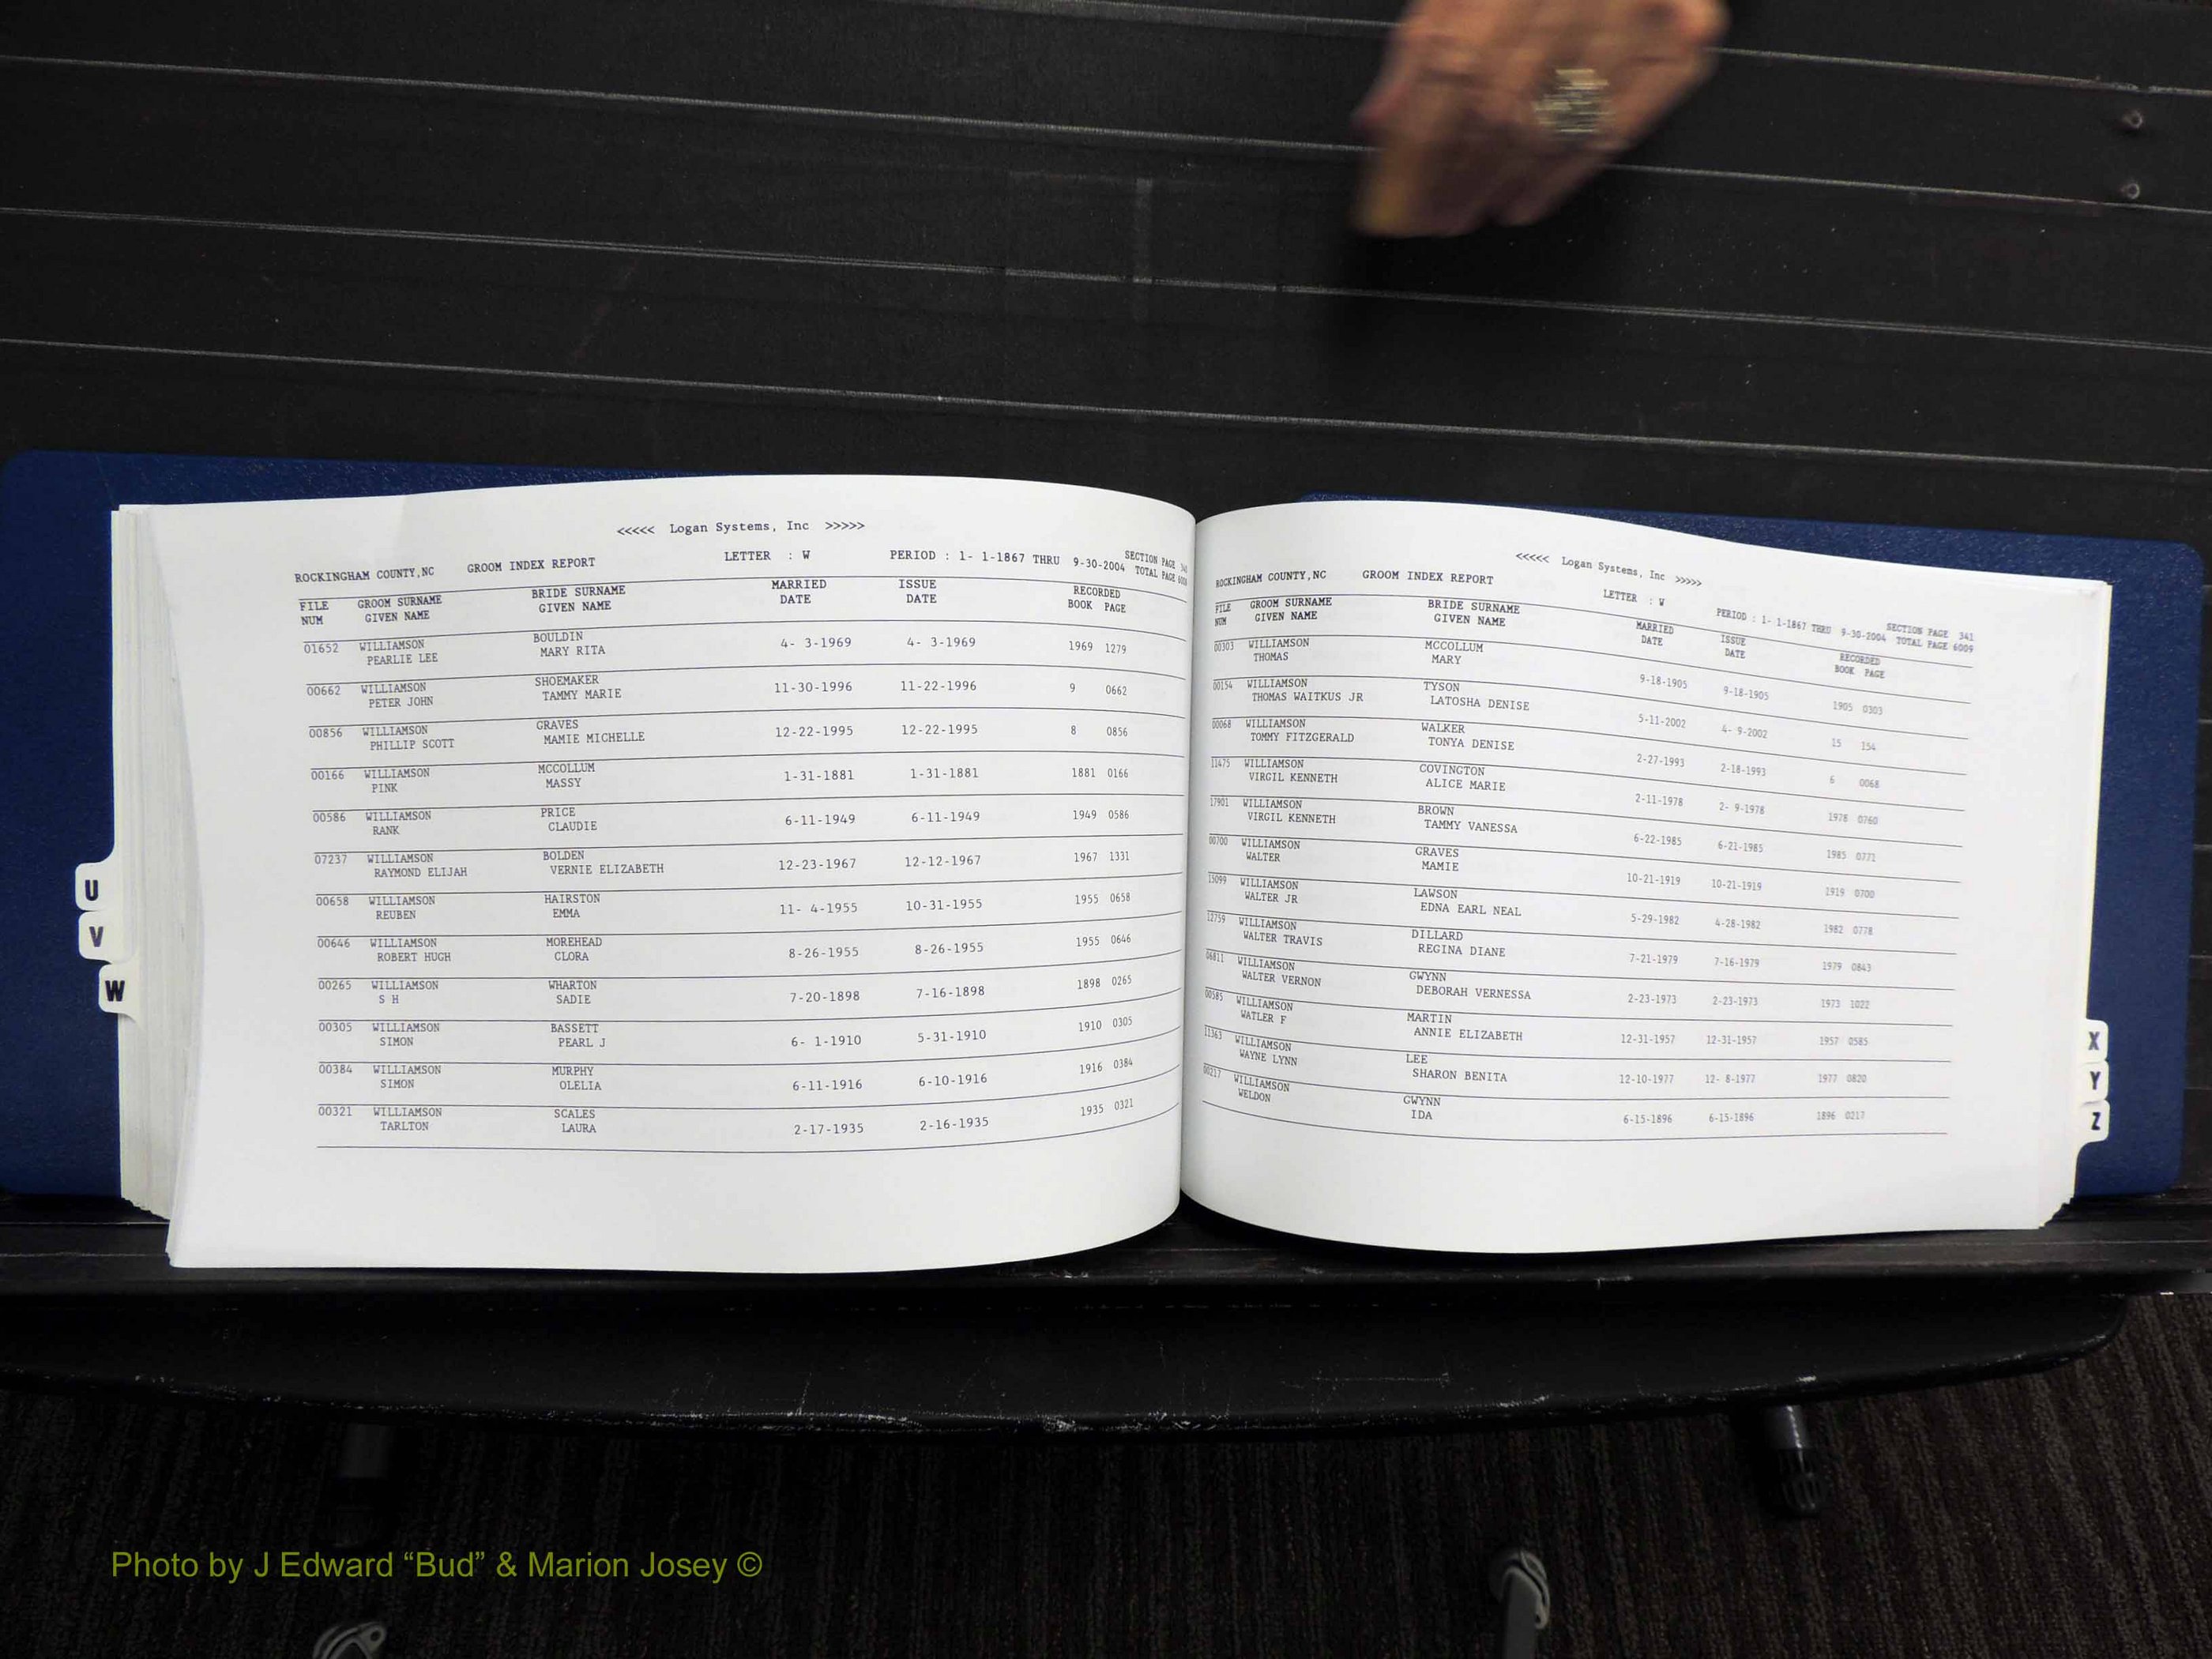 <<<<< Logan Systems, Inc >>>>>
ROCKINGHAM COUNTY,NC GROOM INDEX REPORT LETTER : W PERIOD : 1- 1-1867 THRU 9-30-2004 SECTION PAGE
TOTAL PAGE
FILE GROOM SURNAME BRIDE SURNAME MARRIED ISSUE RECORDED
NUM GIVEN NAME GIVEN NAME DATE DATE BOOK PAGE
01652 WILLIAMSON BOULDIN 4- 3-1969 4- 3-1969 1969 1279
PEARLIE LEE MARY RITA
00662 WILLIAMSON SHOEMAKER 11-30-1996 11-22-1996 9 0662
PETER JOHN TAMMY MARIE
00856 WILLIAMSON GRAVES 12-22-1995 12-22-1995 8 0856
PHILLIP SCOTT MAMIE MICHELLE
00166 WILLIAMSON MCCOLLUM 1-31-1881 1-31-1881 1881 0166
PINK MASSY
00586 WILLIAMSON PRICE 6-11-1949 6-11-1949 1949 0586
RANK CLAUDIE
07237 WILLIAMSON BOLDEN 12-23-1967 12-12-1967 1967 1331
RAYMOND ELIJAH VERNIE ELIZABETH
00658 WILLIAMSON HAIRSTON 11- 4-1955 10-31-1955 1955 0658
REUBEN EMMA
00646 WILLIAMSON MOREHEAD 8-26-1955 8-26-1955 1955 0646
ROBERT HUGH CLORA
00265 WILLIAMSON WHARTON 7-20-1898 7-16-1898 1898 0265
S H SADIE
00305 WILLIAMSON BASSETT 6- 1-1910 5-31-1910 1910 0305
SIMON PEARL J
00384 WILLIAMSON MURPHY 6-11-1916 6-10-1916 1916 0384
SIMON OLELIA
00321 WILLIAMSON SCALES 2-17-1935 2-16-1935 1935 0321
TARLTON LAURA
U
V
W
<<<<< Logan Systems, Inc >>>>>
ROCKINGHAM COUNTY,NC GROOM INDEX REPORT LETTER : W PERIOD : 1- 1-1867 THRU 9-30-2004 SECTION PAGE 341
TOTAL PAGE 6009
FILE GROOM SURNAME BRIDE SURNAME MARRIED ISSUE RECORDED
NUM GIVEN NAME GIVEN NAME DATE DATE BOOK PAGE
00303 WILLIAMSON MCCOLLUM 9-18-1905 9-18-1905 1905 0303
THOMAS MARY
00154 WILLIAMSON TYSON 5-11-2002 4- 9-2002 15 154
THOMAS WAITKUS JR LATOSHA DENISE
00068 WILLIAMSON WALKER 2-27-1993 2-18-1993 6 0068
TOMMY FITZGERALD TONYA DENISE
11475 WILLIAMSON COVINGTON 2-11-1978 2- 9-1978 1978 0760
VIRGIL KENNETH ALICE MARIE
17901 WILLIAMSON BROWN 6-22-1985 6-21-1985 1985 0771
VIRGIL KENNETH TAMMY VANESSA
00700 WILLIAMSON GRAVES 10-21-1919 10-21-1919 1919 0700
WALTER MAMIE
15099 WILLIAMSON LAWSON 5-29-1982 4-28-1982 1982 0778
WALTER JR EDNA EARL NEAL
12759 WILLIAMSON DILLARD 7-21-1979 7-16-1979 1979 0843
WALTER TRAVIS REGINA DIANE
06811 WILLIAMSON GWYNN 2-23-1973 2-23-1973 1973 1022
WALTER VERNON DEBORAH VERNESSA
00585 WILLIAMSON MARTIN 12-31-1957 12-31-1957 1957 0585
WATLER F ANNIE ELIZABETH
11363 WILLIAMSON LEE 12-10-1977 12- 8-1977 1977 0820
WAYNE LYNN SHARON BENITA
00217 WILLIAMSON GWYNN 6-15-1896 6-15-1896 1896 0217
WELDON IDA
X
Y
Z
Photo by J Edward “Bud” & Marion Josey ©